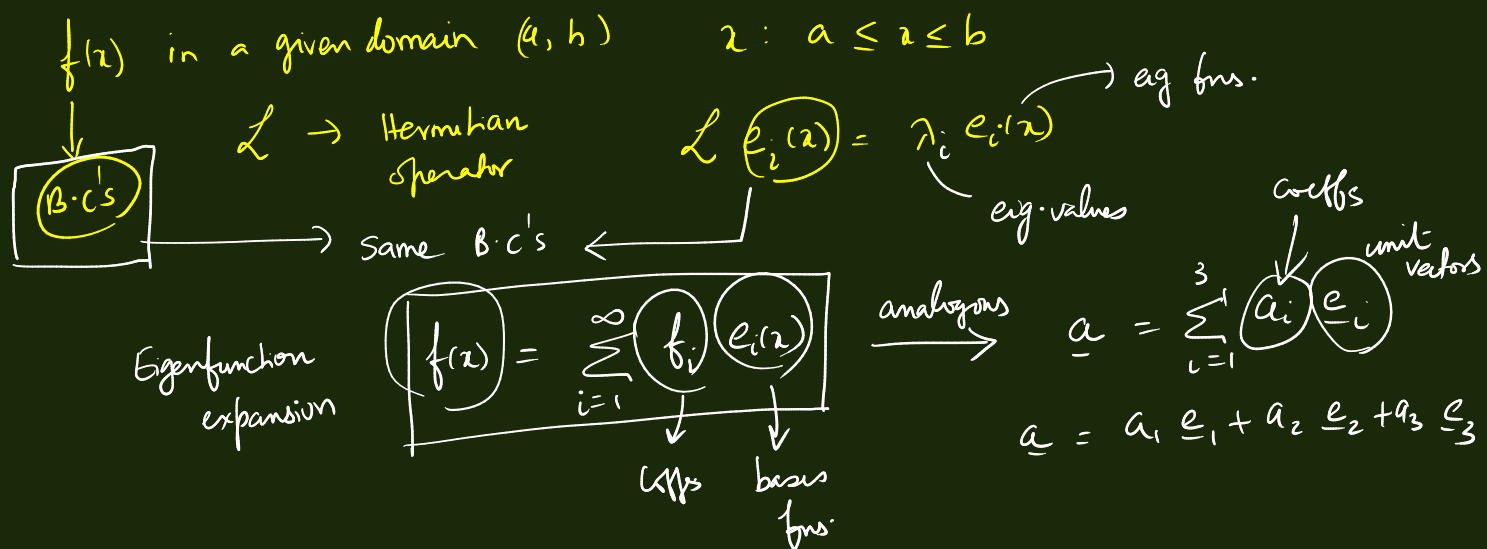 f(x) in a given domain (a, b) x : a ≤ x ≤ b
→ eig fns.
L → Hermitian operator
L e_i(x) = λ_i e_i(x)
B.C's
eig. values
Same B.C's
coeffs
unit vectors
Eigenfunction expansion
f(x) = ∑_{i=1}^{∞} f_i e_i(x)
analogous →
a = ∑_{i=1}^{3} a_i e_i
a = a_1 e_1 + a_2 e_2 + a_3 e_3
Coffs
basis fns.